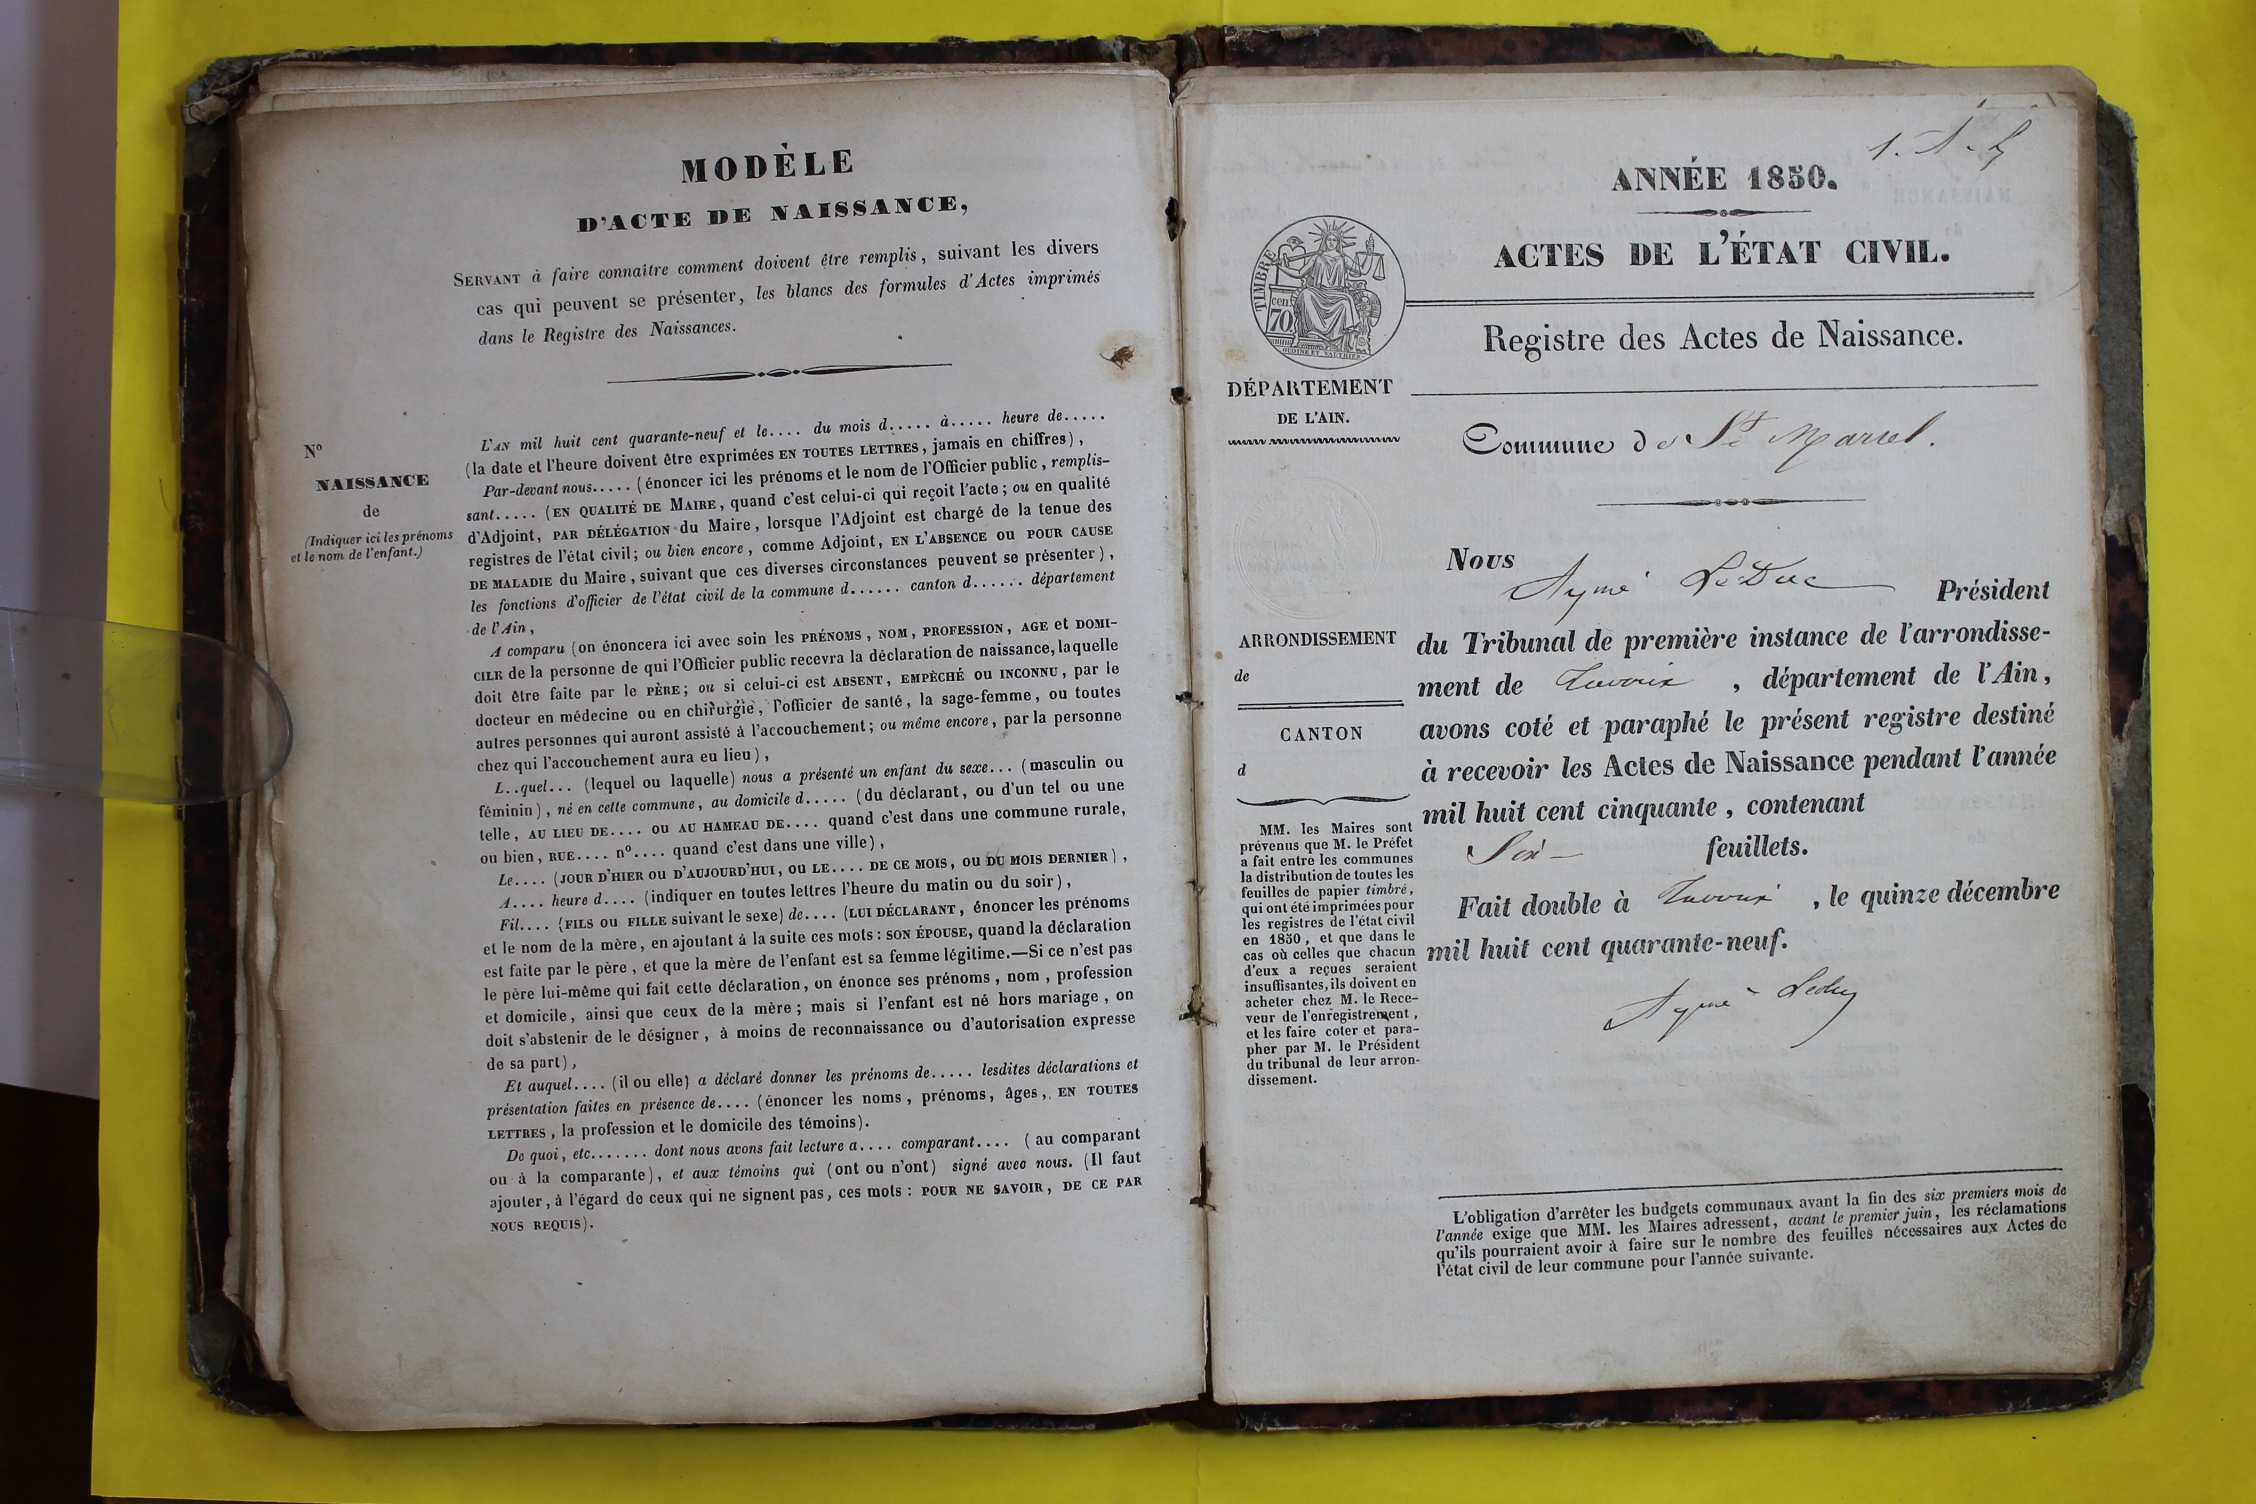 MODÈLE
D'ACTE DE NAISSANCE,
SERVANT à faire connaître comment doivent être remplis, suivant les divers
cas qui peuvent se présenter, les blancs des formules d'Actes imprimés
dans le Registre des Naissances.
No
NAISSANCE
de
(Indiquer ici les prénoms
et le nom de l'enfant.)
L'AN mil huit cent quarante-neuf et le.... du mois d..... à..... heure de.....
(la date et l'heure doivent être exprimées EN TOUTES LETTRES, jamais en chiffres),
Par-devant nous..... (énoncer ici les prénoms et le nom de l'Officier public, remplis-
sant..... (EN QUALITÉ DE MAIRE, quand c'est celui-ci qui reçoit l'acte; ou en qualité
d'Adjoint, PAR DÉLÉGATION du Maire, lorsque l'Adjoint est chargé de la tenue des
registres de l'état civil; ou bien encore, comme Adjoint, EN L'ABSENCE OU POUR CAUSE
DE MALADIE du Maire, suivant que ces diverses circonstances peuvent se présenter),
les fonctions d'officier de l'état civil de la commune d...... canton d...... département
de l'Ain,
A comparu (on énoncera ici avec soin les PRÉNOMS, NOM, PROFESSION, AGE et DOMI-
CILE de la personne de qui l'Officier public recevra la déclaration de naissance, laquelle
doit être faite par le PÈRE; ou si celui-ci est ABSENT, EMPÊCHÉ OU INCONNU, par le
docteur en médecine ou en chirurgie, l'officier de santé, la sage-femme, ou toutes
autres personnes qui auront assisté à l'accouchement; ou même encore, par la personne
chez qui l'accouchement aura eu lieu),
L..quel... (lequel ou laquelle) nous a présenté un enfant du sexe... (masculin ou
féminin), né en cette commune, au domicile d..... (du déclarant, ou d'un tel ou une
telle, AU LIEU DE.... OU AU HAMEAU DE.... quand c'est dans une commune rurale,
ou bien, RUE.... no.... quand c'est dans une ville),
Le.... (JOUR D'HIER OU D'AUJOURD'HUI, OU LE.... DE CE MOIS, OU DU MOIS DERNIER),
A.... heure d.... (indiquer en toutes lettres l'heure du matin ou du soir),
Fil.... (FILS OU FILLE suivant le sexe) de.... (LUI DÉCLARANT, énoncer les prénoms
et le nom de la mère, en ajoutant à la suite ces mots: SON ÉPOUSE, quand la déclaration
est faite par le père, et que la mère de l'enfant est sa femme légitime.—Si ce n'est pas
le père lui-même qui fait cette déclaration, on énonce ses prénoms, nom, profession
et domicile, ainsi que ceux de la mère; mais si l'enfant est né hors mariage, on
doit s'abstenir de le désigner, à moins de reconnaissance ou d'autorisation expresse
de sa part),
Et auquel.... (il ou elle) a déclaré donner les prénoms de..... lesdites déclarations et
présentation faites en présence de.... (énoncer les noms, prénoms, âges, EN TOUTES
LETTRES, la profession et le domicile des témoins).
De quoi, etc....... dont nous avons fait lecture a.... comparant.... (au comparant
ou à la comparante), et aux témoins qui (ont ou n'ont) signé avec nous. (Il faut
ajouter, à l'égard de ceux qui ne signent pas, ces mots: POUR NE SAVOIR, DE CE PAR
NOUS REQUIS).
ANNÉE 1850.
ACTES DE L'ÉTAT CIVIL.
TIMBRE
cen.
70
Registre des Actes de Naissance.
DÉPARTEMENT
DE L'AIN.
Commune de St Marcel.
Nous
Aymé LeDuc Président
du Tribunal de première instance de l'arrondisse-
ment de Trévoux, département de l'Ain,
avons coté et paraphé le présent registre destiné
à recevoir les Actes de Naissance pendant l'année
mil huit cent cinquante, contenant
Six feuillets.
Fait double à Trévoux, le quinze décembre
mil huit cent quarante-neuf.
Aymé Leduc
ARRONDISSEMENT
de
CANTON
d
MM. les Maires sont
prévenus que M. le Préfet
a fait entre les communes
la distribution de toutes les
feuilles de papier timbré,
qui ont été imprimées pour
les registres de l'état civil
en 1850, et que dans le
cas où celles que chacun
d'eux a reçues seraient
insuffisantes, ils doivent en
acheter chez M. le Rece-
veur de l'enregistrement,
et les faire coter et para-
pher par M. le Président
du tribunal de leur arron-
dissement.
L'obligation d'arrêter les budgets communaux avant la fin des six premiers mois de
l'année exige que MM. les Maires adressent, avant le premier juin, les réclamations
qu'ils pourraient avoir à faire sur le nombre des feuilles nécessaires aux Actes de
l'état civil de leur commune pour l'année suivante.